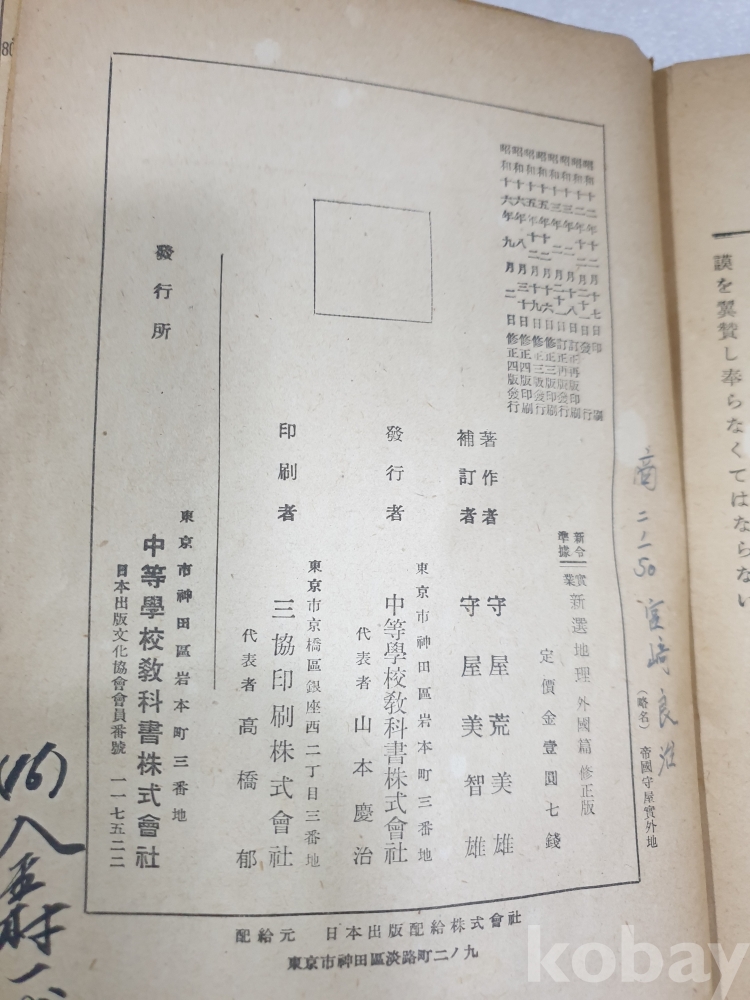 昭和十二年十二月十七日印刷
昭和十二年十二月二十一日發行
昭和十三年二月十八日訂正再版印刷
昭和十三年二月二十一日訂正再版發行
昭和十五年十二月十六日修正三版印刷
昭和十五年十二月十九日修正三版發行
昭和十六年八月三十日修正四版印刷
昭和十六年九月二日修正四版發行
(略名) 帝國守屋實外地
新令準據 實業 新選地理 外國篇 修正版
定價金壹圓七錢
著作者 守屋荒美雄
補訂者 守屋美智雄
東京市神田區岩本町三番地
發行者 中等學校敎科書株式會社
代表者 山本慶治
東京市京橋區銀座西二丁目三番地
印刷者 三協印刷株式會社
代表者 高橋郁
東京市神田區岩本町三番地
發行所 中等學校敎科書株式會社
日本出版文化協會會員番號 一一七五二二
配給元 日本出版配給株式會社
東京市神田區淡路町二ノ九
謨を翼賛し奉らなくてはならない
商二ノ一50 宮崎良
(16)
kobay